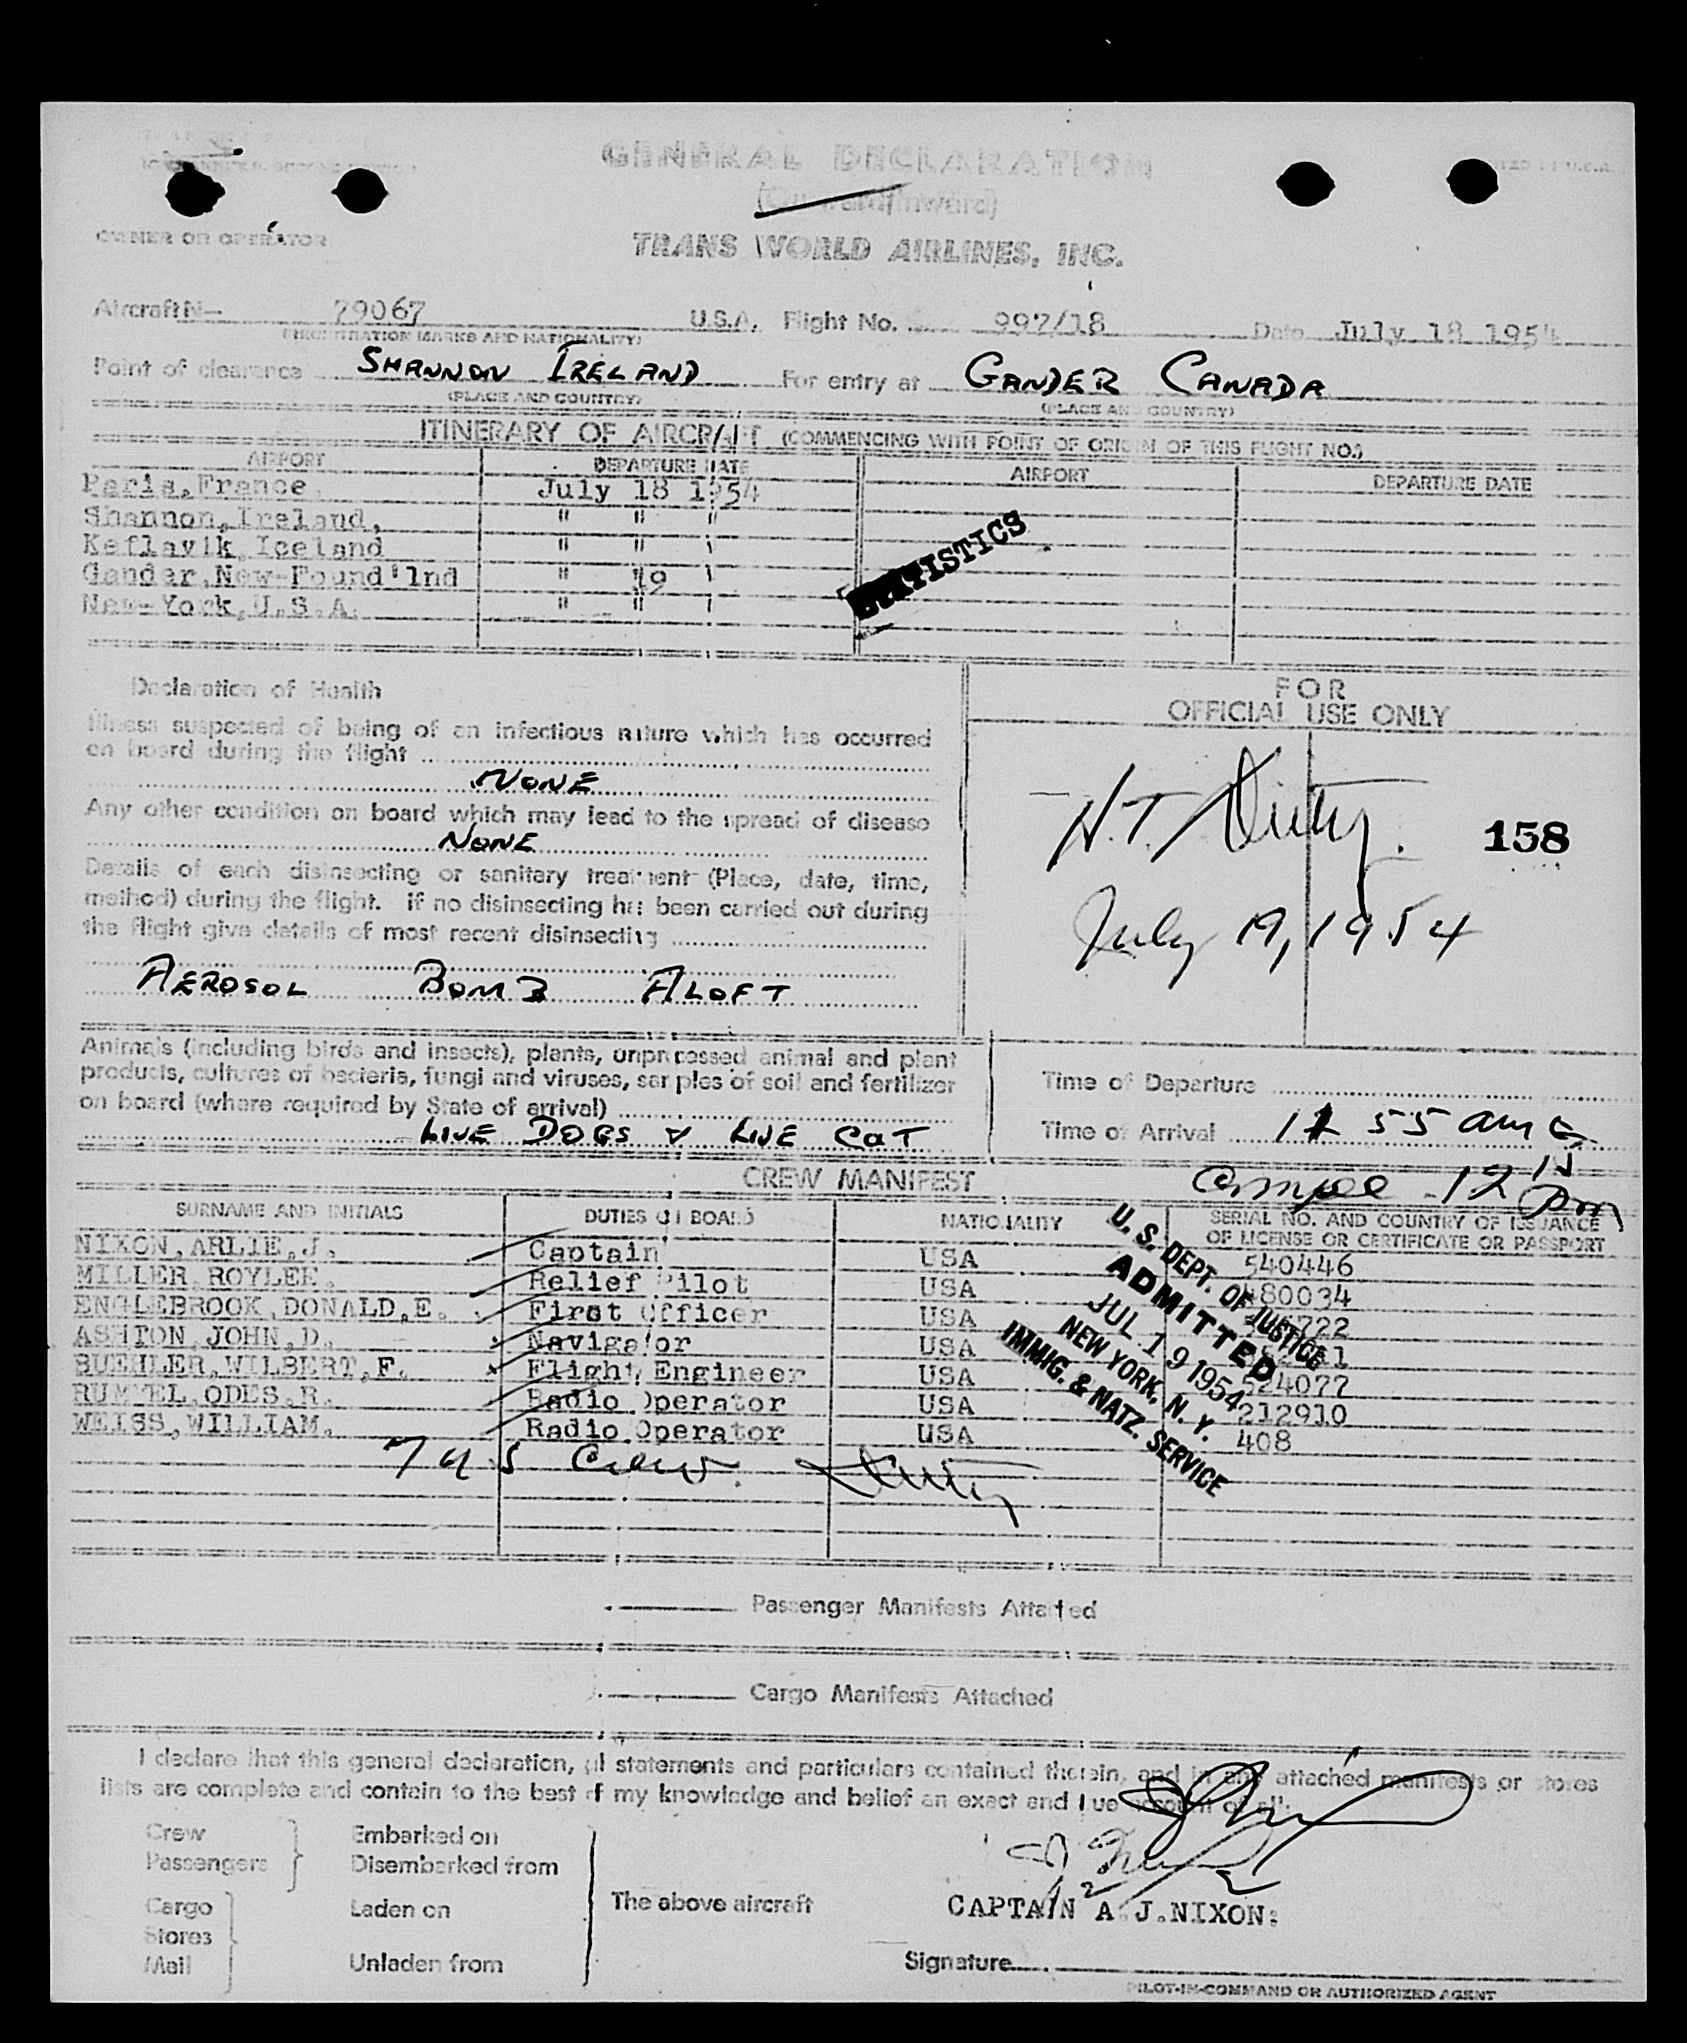 GENERAL DECLARATION
(Outward/Inward)
OWNER OR OPERATOR
TRANS WORLD AIRLINES, INC.
Aircraft N— 79067 U.S.A. Flight No. 997/18 Date July 18 1954
(REGISTRATION MARKS AND NATIONALITY)
Point of clearance SHANNON IRELAND For entry at GANDER CANADA
(PLACE AND COUNTRY) (PLACE AND COUNTRY)
ITINERARY OF AIRCRAFT (COMMENCING WITH POINT OF ORIGIN OF THIS FLIGHT NO.)
AIRPORT DEPARTURE DATE AIRPORT DEPARTURE DATE
Paris, France July 18 1954
Shannon, Ireland, " " "
Keflavik Iceland " "
Gander, New-Found'lnd " 19
New-York, U.S.A. " "
STATISTICS
Declaration of Health
Illness suspected of being of an infectious nature which has occurred
on board during the flight
NONE
Any other condition on board which may lead to the spread of disease
NONE
Details of each disinsecting or sanitary treatment (Place, date, time,
method) during the flight. If no disinsecting has been carried out during
the flight give details of most recent disinsecting
AEROSOL BOMB ALOFT
FOR
OFFICIAL USE ONLY
H.T. Duty. 158
July 19, 1954
Animals (including birds and insects), plants, unprocessed animal and plant
products, cultures of bacteria, fungi and viruses, samples of soil and fertilizer
on board (where required by State of arrival)
LIVE DOGS & LIVE CAT
Time of Departure
Time of Arrival 11 55 am
12 pm
CREW MANIFEST
SURNAME AND INITIALS DUTIES ON BOARD NATIONALITY SERIAL NO. AND COUNTRY OF ISSUANCE
OF LICENSE OR CERTIFICATE OR PASSPORT
NIXON, ARLIE, J. Captain USA 540446
MILLER ROYLEE. Relief Pilot USA 480034
ENGLEBROOK, DONALD, E. First Officer USA 722
ASHTON, JOHN, D. Navigator USA
BUEHLER, WILBERT, F. Flight Engineer USA 524077
RUMMEL, ODES, R. Radio Operator USA 212910
WEISS, WILLIAM. Radio Operator USA 408
7 US Crew. Duty
U. S. DEPT. OF JUSTICE
ADMITTED
JUL 19 1954
NEW YORK, N. Y.
IMMIG. & NATZ. SERVICE
Passenger Manifests Attached
Cargo Manifests Attached
I declare that this general declaration, all statements and particulars contained therein, and in any attached manifests or stores
lists are complete and contain to the best of my knowledge and belief an exact and true account of all:
Crew Embarked on
Passengers Disembarked from
Cargo Laden on The above aircraft CAPTAIN A.J.NIXON:
Stores
Mail Unladen from Signature
PILOT-IN-COMMAND OR AUTHORIZED AGENT